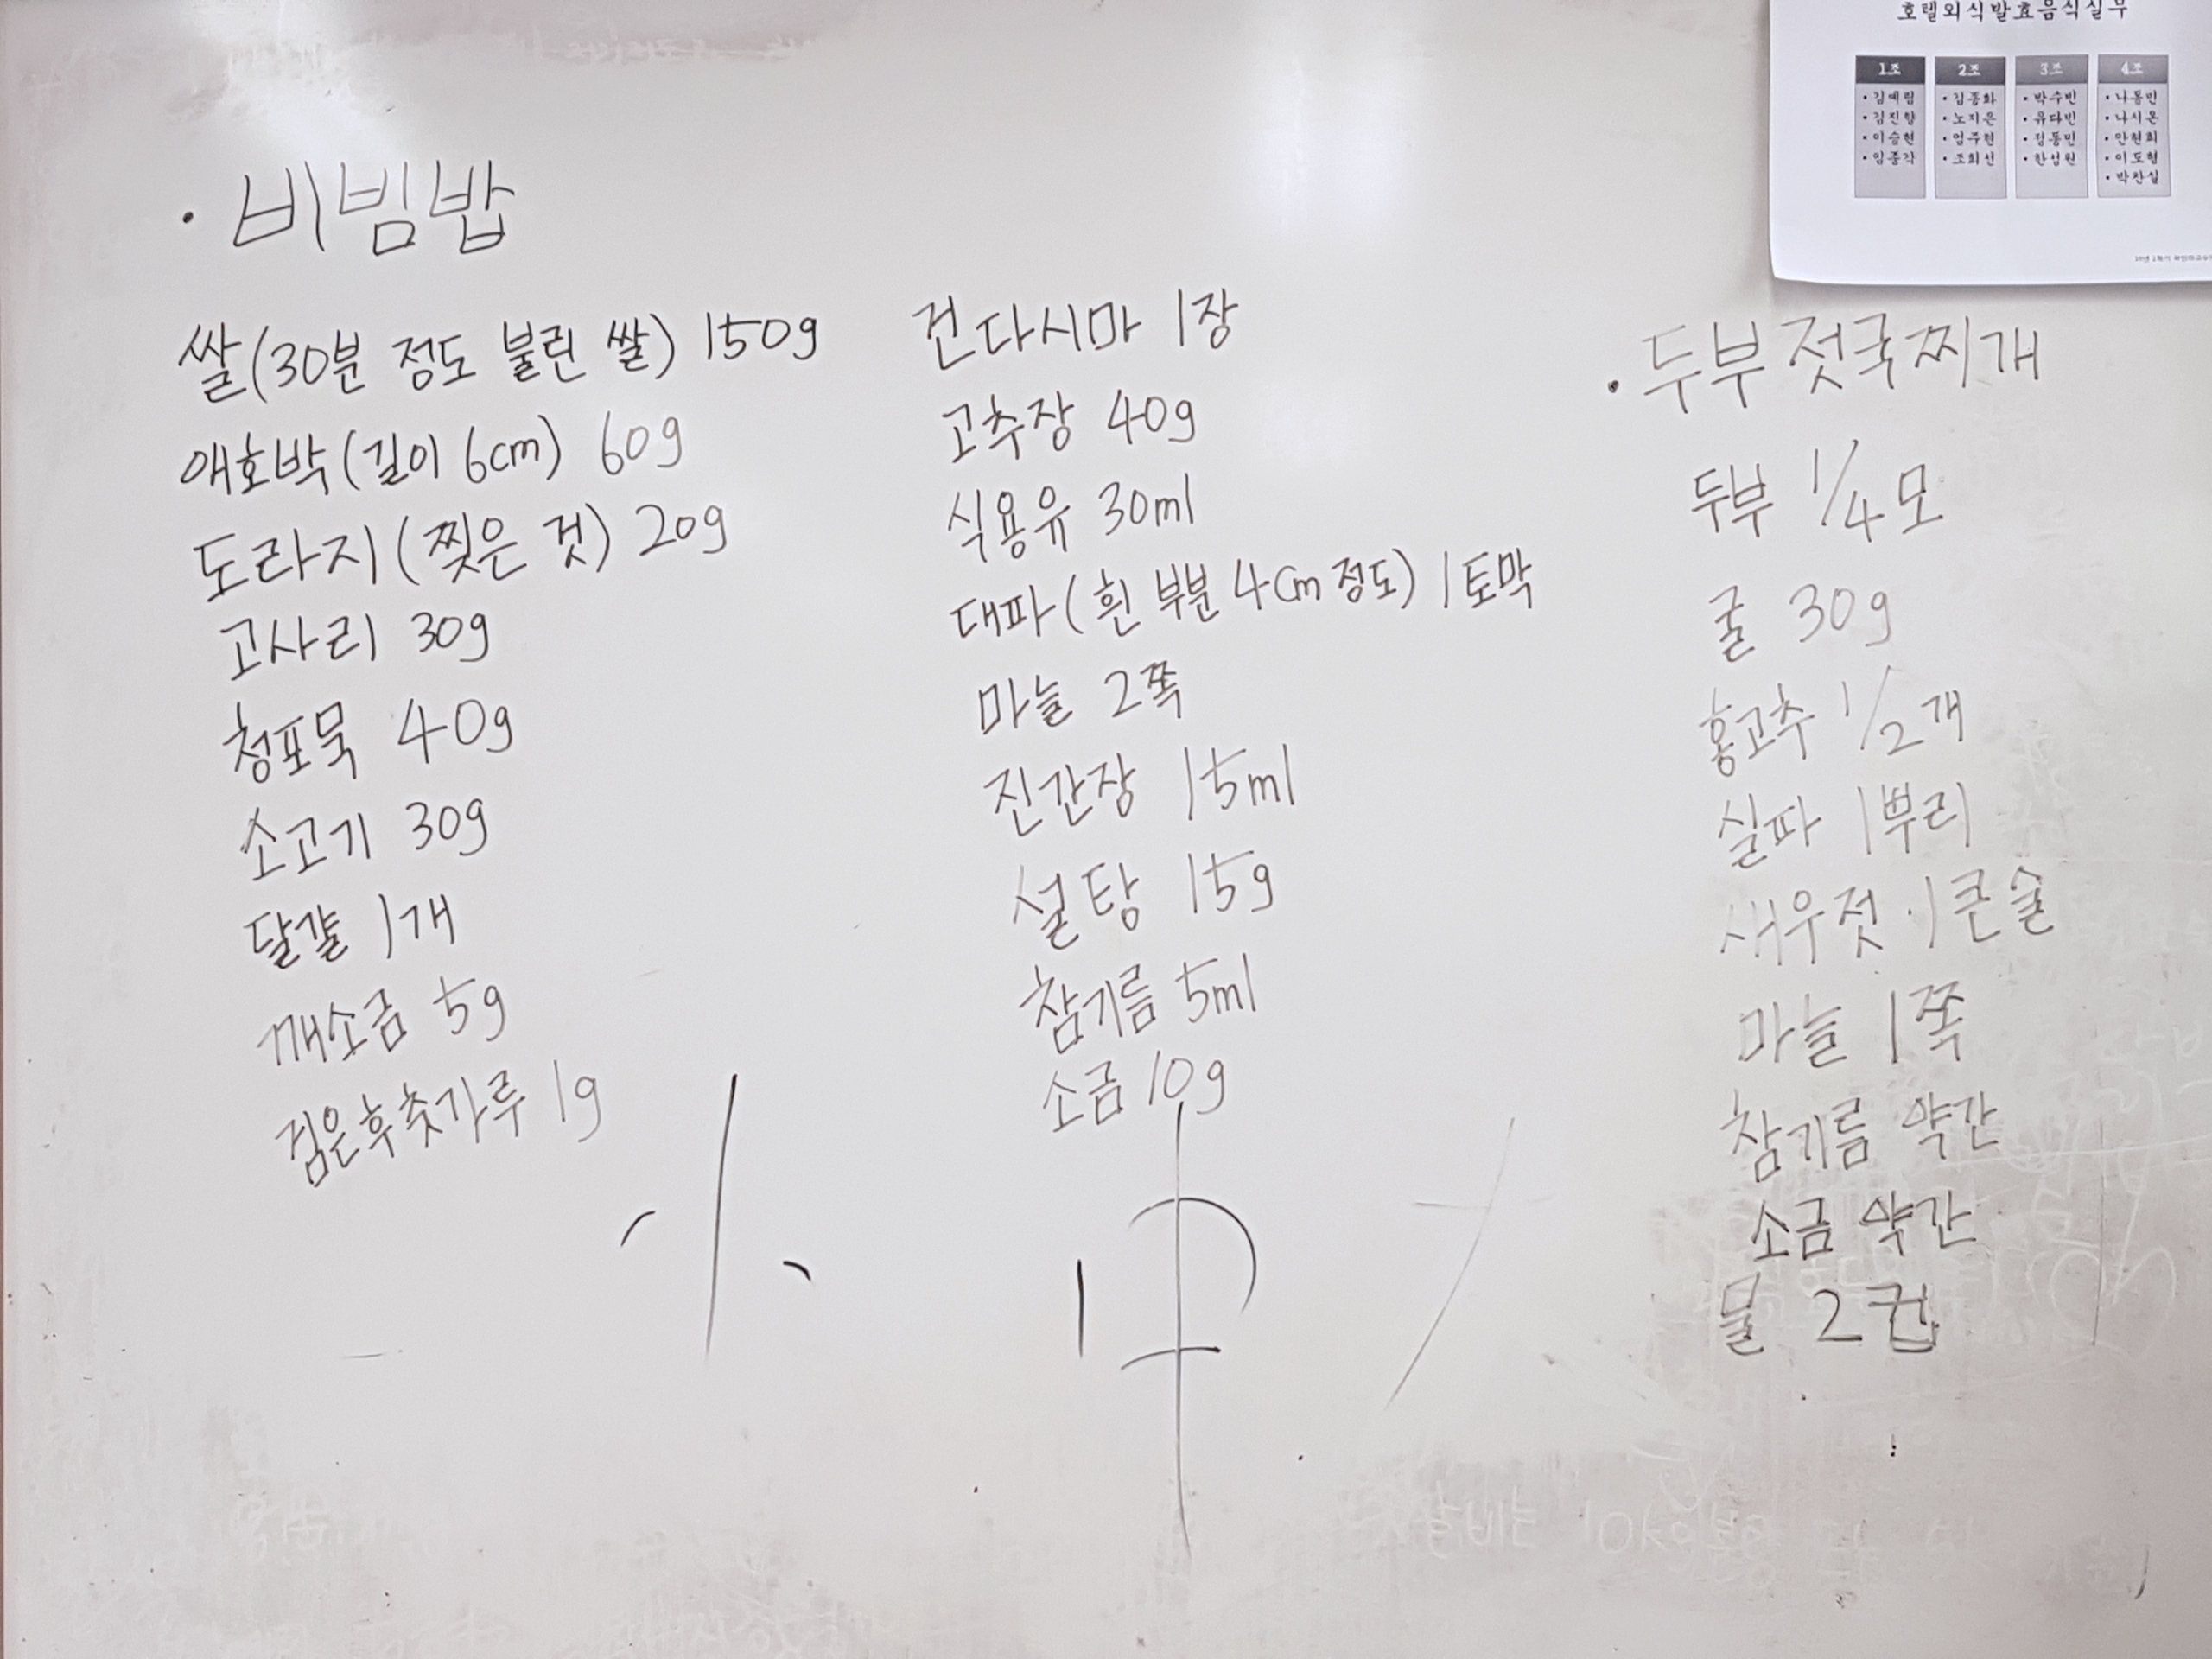 호텔외식발효음식실무
1조 2조 3조 4조
• 김예림 • 김종화 • 박수빈 • 나동민
• 김진향 • 노지은 • 유다빈 • 나시온
• 이승현 • 엄주현 • 정동민 • 안현희
• 임종각 • 조희선 • 한성원 • 이도형
• 박찬실
· 비빔밥
쌀(30분 정도 불린 쌀) 150g
애호박(길이 6cm) 60g
도라지(찢은 것) 20g
고사리 30g
청포묵 40g
소고기 30g
달걀 1개
깨소금 5g
검은후춧가루 1g
건다시마 1장
고추장 40g
식용유 30ml
대파(흰 부분 4cm 정도) 1토막
마늘 2쪽
진간장 15ml
설탕 15g
참기름 5ml
소금 10g
· 두부젓국찌개
두부 1/4모
굴 30g
홍고추 1/2개
실파 1뿌리
새우젓 1큰술
마늘 1쪽
참기름 약간
소금 약간
물 2컵